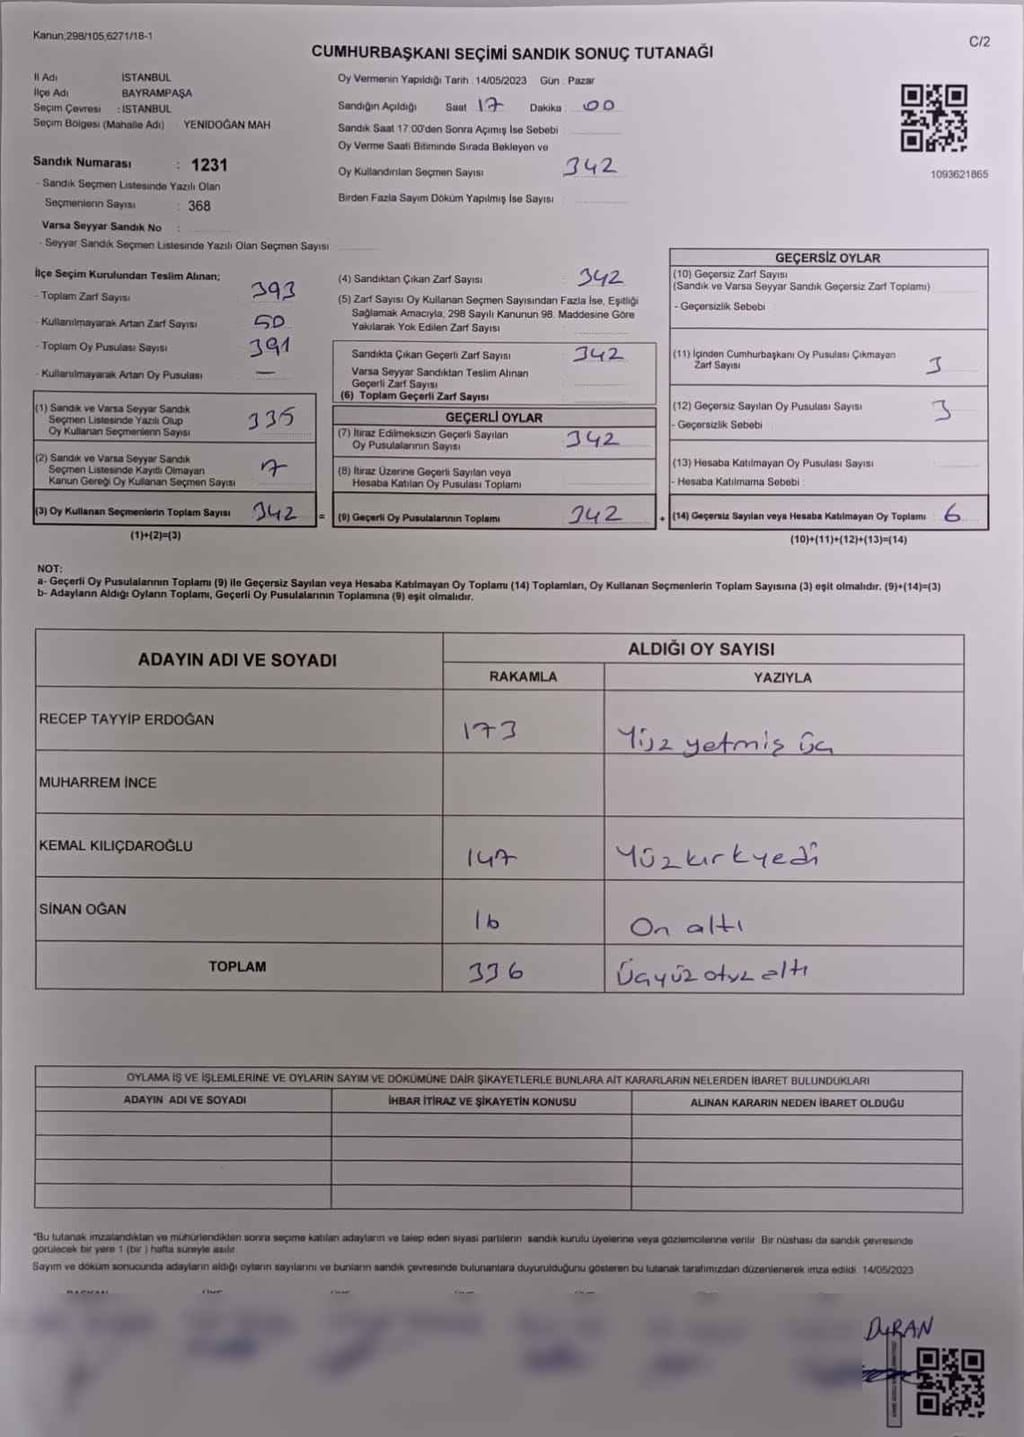 Kanun;298/105,6271/18-1
C/2
CUMHURBAŞKANI SEÇİMİ SANDIK SONUÇ TUTANAĞI
İl Adı İSTANBUL
İlçe Adı BAYRAMPAŞA
Seçim Çevresi : İSTANBUL
Seçim Bölgesi (Mahalle Adı) YENİDOĞAN MAH
Sandık Numarası : 1231
- Sandık Seçmen Listesinde Yazılı Olan
Seçmenlerin Sayısı : 368
Varsa Seyyar Sandık No :
- Seyyar Sandık Seçmen Listesinde Yazılı Olan Seçmen Sayısı
Oy Vermenin Yapıldığı Tarih : 14/05/2023 Gün : Pazar
Sandığın Açıldığı Saat 17 Dakika 00
Sandık Saat 17:00'den Sonra Açımış İse Sebebi
Oy Verme Saati Bitiminde Sırada Bekleyen ve
Oy Kullandırılan Seçmen Sayısı 342
Birden Fazla Sayım Döküm Yapılmış İse Sayısı
1093621865
İlçe Seçim Kurulundan Teslim Alınan;
- Toplam Zarf Sayısı 393
- Kullanılmayarak Artan Zarf Sayısı 50
- Toplam Oy Pusulası Sayısı 391
- Kullanılmayarak Artan Oy Pusulası —
(1) Sandık ve Varsa Seyyar Sandık
Seçmen Listesinde Yazılı Olup
Oy Kullanan Seçmenlerin Sayısı 335
(2) Sandık ve Varsa Seyyar Sandık
Seçmen Listesinde Kayıtlı Olmayan
Kanun Gereği Oy Kullanan Seçmen Sayısı 7
(3) Oy Kullanan Seçmenlerin Toplam Sayısı 342 =
(1)+(2)=(3)
(4) Sandıktan Çıkan Zarf Sayısı : 342
(5) Zarf Sayısı Oy Kullanan Seçmen Sayısından Fazla İse, Eşitliği
Sağlamak Amacıyla, 298 Sayılı Kanunun 98. Maddesine Göre
Yakılarak Yok Edilen Zarf Sayısı
Sandıkta Çıkan Geçerli Zarf Sayısı 342
Varsa Seyyar Sandıktan Teslim Alınan
Geçerli Zarf Sayısı
(6) Toplam Geçerli Zarf Sayısı
GEÇERLİ OYLAR
(7) İtiraz Edilmeksizin Geçerli Sayılan
Oy Pusulalarının Sayısı 342
(8) İtiraz Üzerine Geçerli Sayılan veya
Hesaba Katılan Oy Pusulası Toplamı
(9) Geçerli Oy Pusulalarının Toplamı 342 +
GEÇERSİZ OYLAR
(10) Geçersiz Zarf Sayısı
(Sandık ve Varsa Seyyar Sandık Geçersiz Zarf Toplamı)
- Geçersizlik Sebebi
(11) İçinden Cumhurbaşkanı Oy Pusulası Çıkmayan
Zarf Sayısı 3
(12) Geçersiz Sayılan Oy Pusulası Sayısı 3
- Geçersizlik Sebebi
(13) Hesaba Katılmayan Oy Pusulası Sayısı
- Hesaba Katılmama Sebebi :
(14) Geçersiz Sayılan veya Hesaba Katılmayan Oy Toplamı 6
(10)+(11)+(12)+(13)=(14)
NOT:
a- Geçerli Oy Pusulalarının Toplamı (9) ile Geçersiz Sayılan veya Hesaba Katılmayan Oy Toplamı (14) Toplamları, Oy Kullanan Seçmenlerin Toplam Sayısına (3) eşit olmalıdır. (9)+(14)=(3)
b- Adayların Aldığı Oyların Toplamı, Geçerli Oy Pusulalarının Toplamına (9) eşit olmalıdır.
ADAYIN ADI VE SOYADI
ALDIĞI OY SAYISI
RAKAMLA YAZIYLA
RECEP TAYYİP ERDOĞAN 173 Yüz yetmiş üç
MUHARREM İNCE
KEMAL KILIÇDAROĞLU 147 Yüzkırkyedi
SİNAN OĞAN 16 On altı
TOPLAM 336 Üçyüz otuz altı
OYLAMA İŞ VE İŞLEMLERİNE VE OYLARIN SAYIM VE DÖKÜMÜNE DAİR ŞİKAYETLERLE BUNLARA AİT KARARLARIN NELERDEN İBARET BULUNDUKLARI
ADAYIN ADI VE SOYADI İHBAR İTİRAZ VE ŞİKAYETİN KONUSU ALINAN KARARIN NEDEN İBARET OLDUĞU
*Bu tutanak imzalandıktan ve mühürlendikten sonra seçime katılan adayların ve talep eden siyasi partilerin sandık kurulu üyelerine veya gözlemcilerine verilir. Bir nüshası da sandık çevresinde
görülecek bir yere 1 (bir ) hafta süreyle asılır.
Sayım ve döküm sonucunda adayların aldığı oyların sayılarını ve bunların sandık çevresinde bulunanlara duyurulduğunu gösteren bu tutanak tarafımızdan düzenlenerek imza edildi. 14/05/2023
DURAN